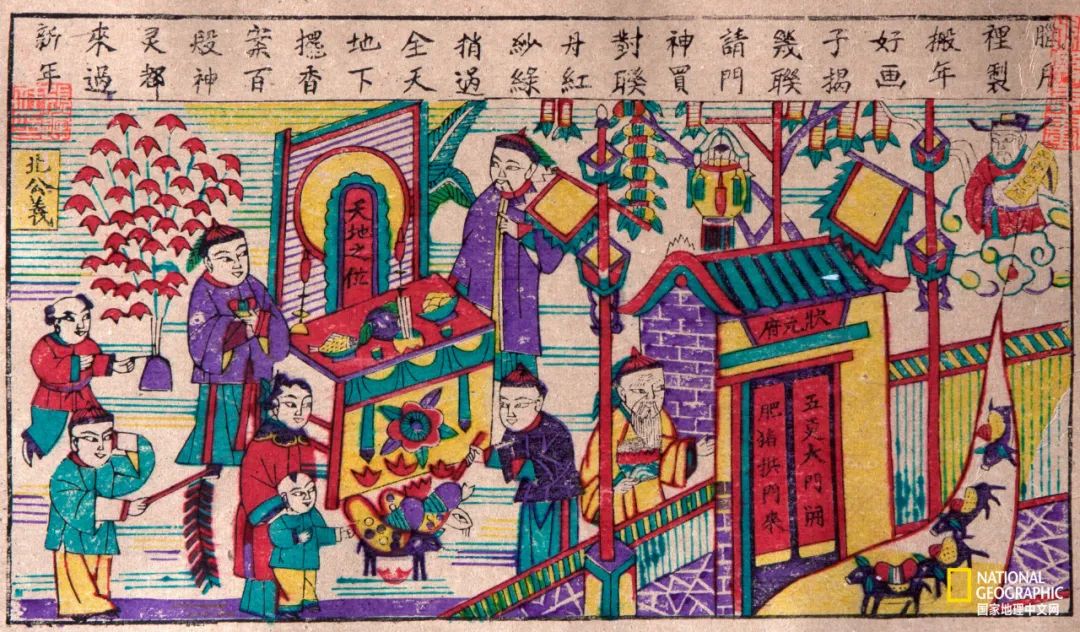 臘月裡製搬年好画子揭幾聯請門神買對聯丹紅紗綠捎過全天地下擺香案百般神灵都來過新年
北公義
天地之位
狀元府
五更大門開
肥猪拱門來
NATIONAL
GEOGRAPHIC
国家地理中文网